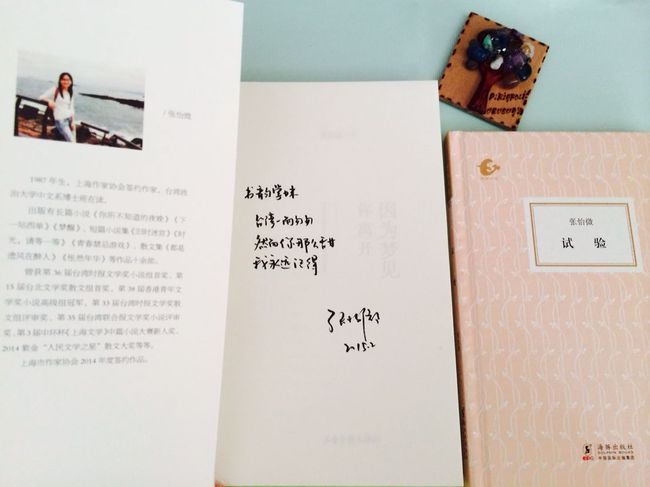 /张怡微
1987年生，上海作家协会签约作家，台湾政
治大学中文系博士班在读。
出版有长篇小说《你所不知道的夜晚》《下
一站西单》《梦醒》，短篇小说集《旧时迷宫》《时
光，请等一等》《青春禁品游戏》，散文集《都是
遗风在醉人》《怅然年华》等作品十余部。
曾获第36届台湾时报文学奖小说组首奖、第
15届台北文学奖散文组首奖、第38届香港青年文
学奖小说高级组冠军、第33届台湾时报文学奖散
文组评审奖、第35届台湾联合报文学奖小说评审
奖、第3届中环杯《上海文学》中篇小说大赛新人奖、
2014紫金“人民文学之星”散文大奖等等。
上海市作家协会2014年度签约作品。
书韵学妹
台湾一面匆匆
然而你那么甜
我永远记得
张怡微
2015.2
因为梦见
你离开
张怡微
试验
海豚出版社
DOLPHIN BOOKS
中国国际出版集团